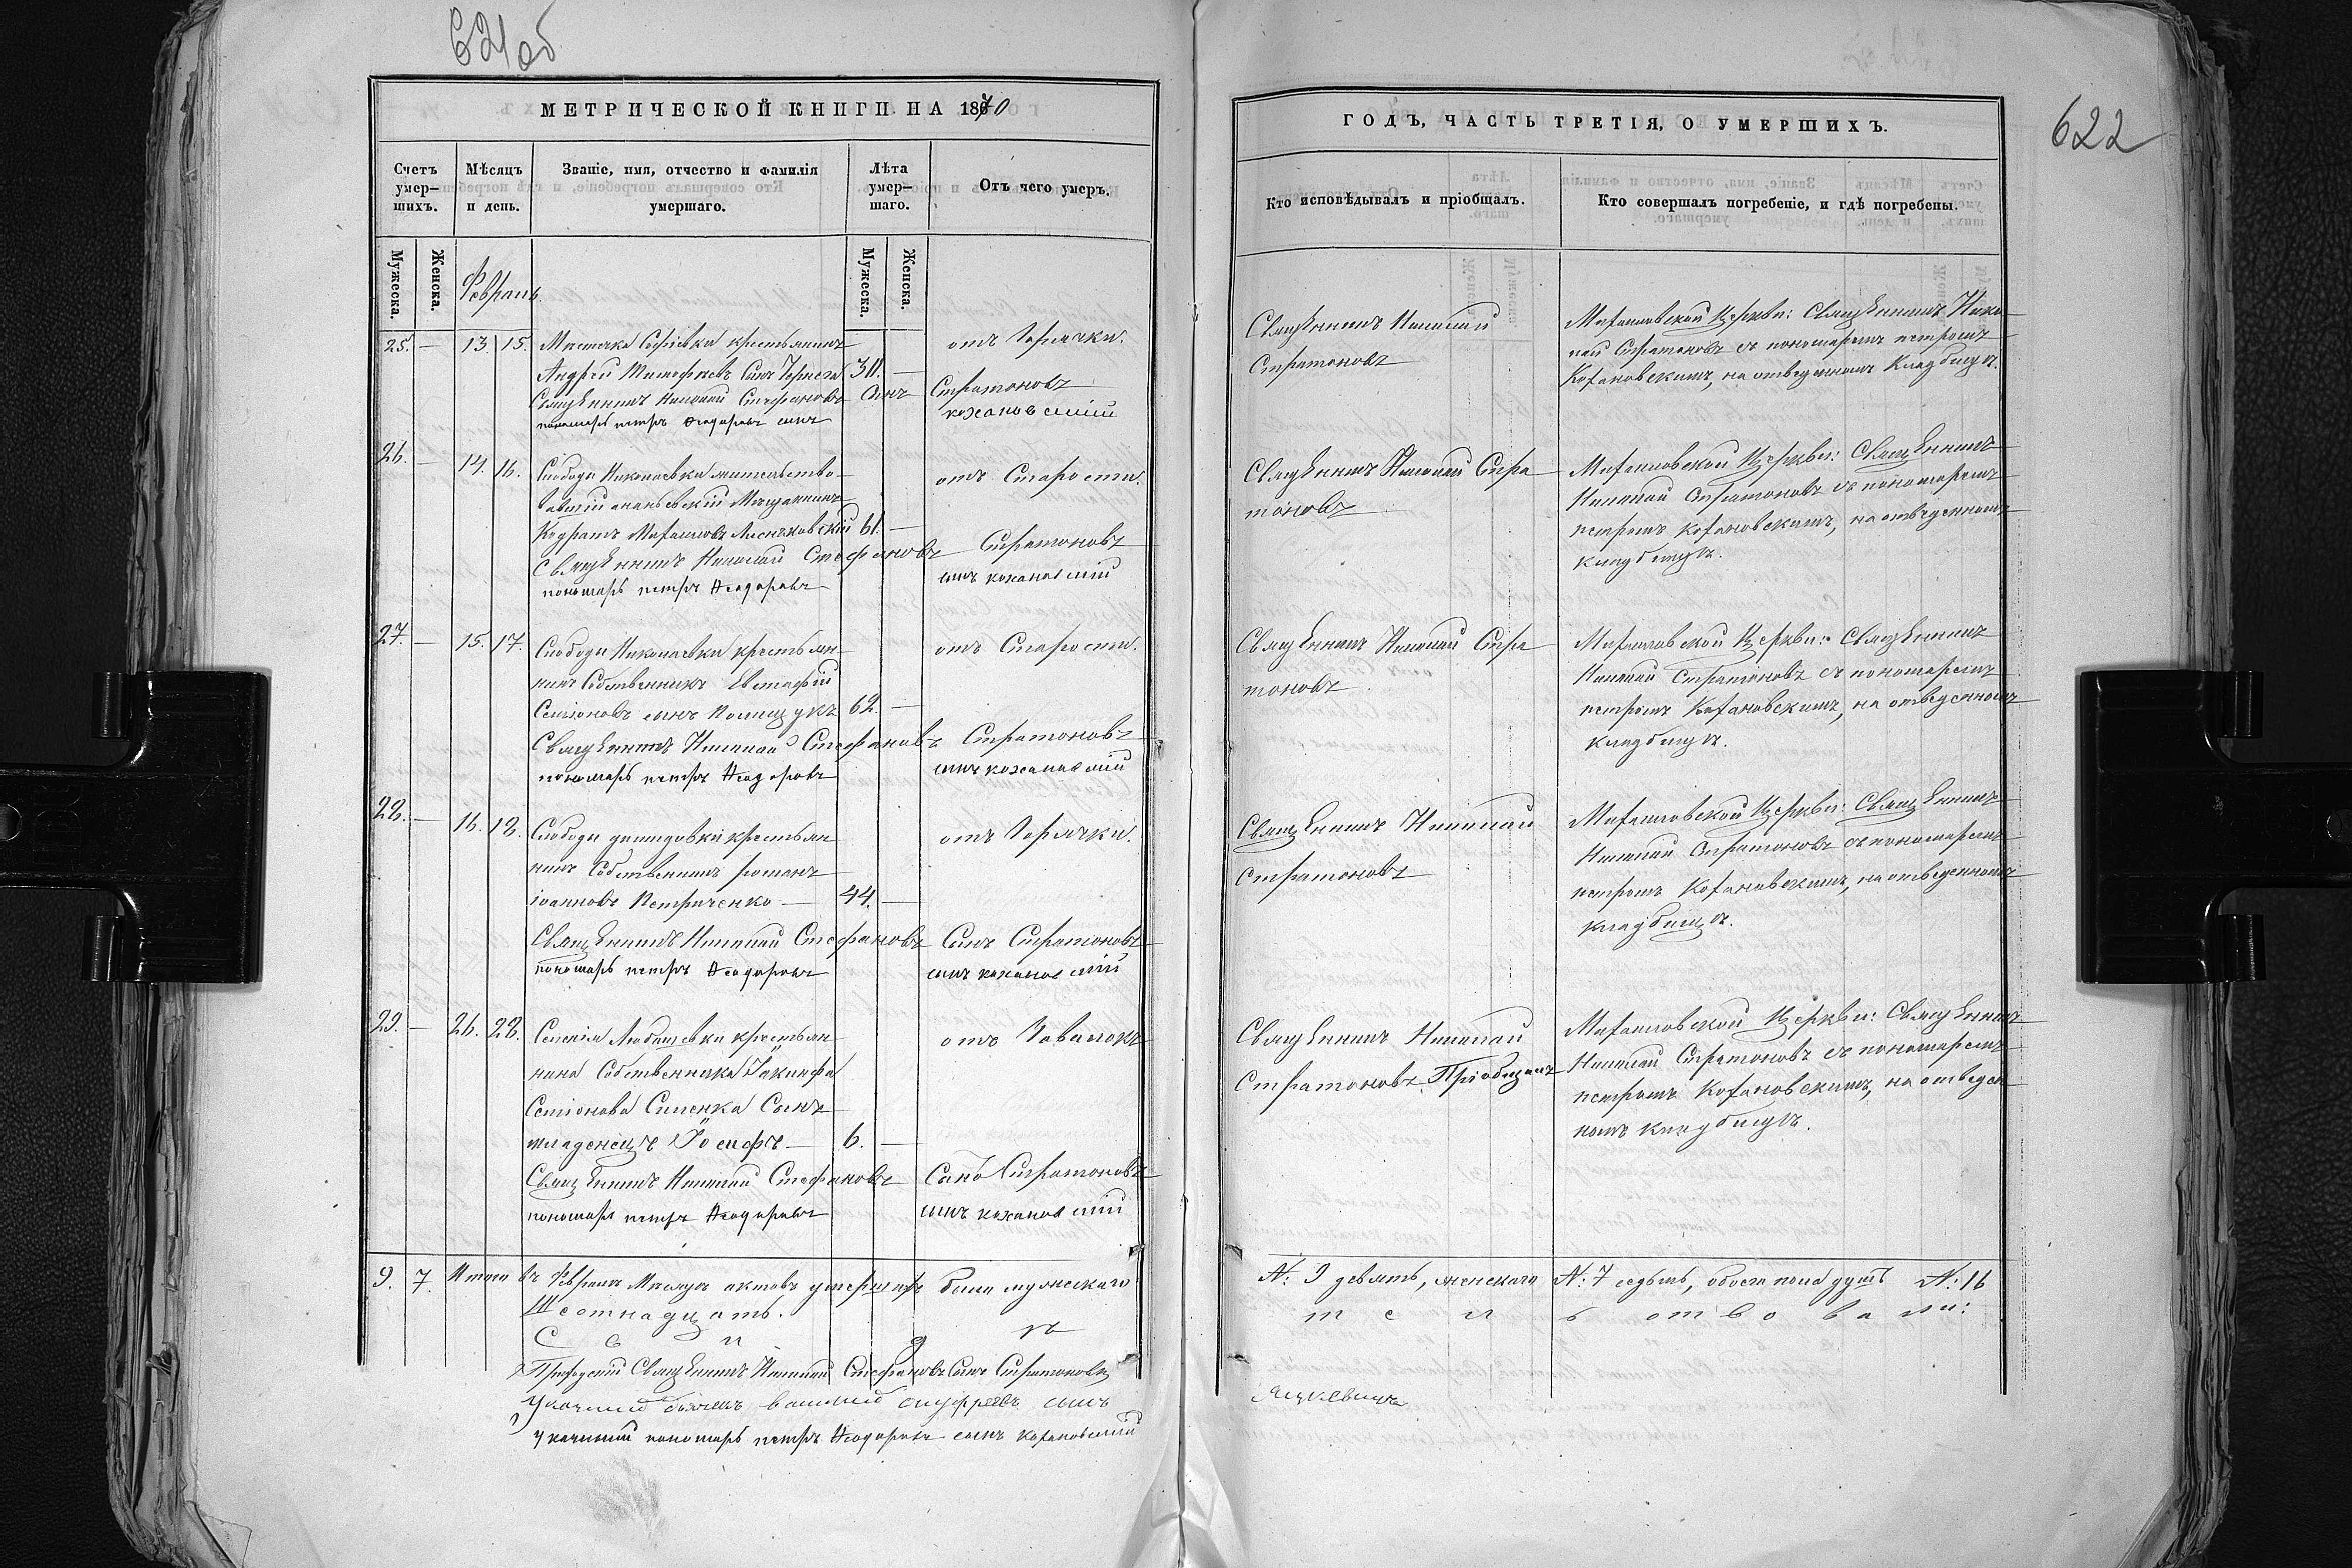 621об
МЕТРИЧЕСКОЙ КНИГИ НА 1870
Счетъ умер-шихъ.
Мѣсяцъ и день.
Званіе, имя, отчество и фамилія умершаго.
Лѣта умер-шаго.
Отъ чего умеръ.
Мужеска.
Женска.
Февраль
Мужеска.
Женска.
25. — 13. 15. Мѣстечка Софіевка крестьянинъ отъ Горячки.
Андрей Тимофѣевъ Сынъ 30. —
Священникъ Николай Стефановъ Сынъ Стратоновъ
пономарь петръ Ѳеодоровъ сынъ кохановскій
26. — 14. 16. Слободы Николаевки жительство- отъ Старости.
вавшій ананьевскій Мѣщанинъ
Кодратъ Михаиловъ Лисняковскій 61. —
Священникъ Николай Стефановъ Стратоновъ
пономарь петръ Ѳеодоровъ сынъ кохановскій
27. — 15. 17. Слободы Николаевки крестьян- отъ Старости.
нинъ Собственникъ Евстафій
Семіоновъ сынъ Полищукъ 62. —
Священникъ Николай Стефановъ Стратоновъ
пономарь петръ Ѳеодоровъ сынъ кохановскій
28. — 16. 18. Слободы демидовки крестьян- отъ Горячки.
нинъ Собственникъ романъ
іоанновъ Петриченко — 44. —
Священникъ Николай Стефановъ Сынъ Стратоновъ
пономарь петръ Ѳеодоровъ сынъ кохановскій
29. — 26. 28. Селенія Любашевки крестьян- отъ Завалокъ
нина Собственника Іакинфа
Семіонова Сынъ
младенецъ Іосифъ — 6. —
Священникъ Николай Стефановъ Сынъ Стратоновъ
пономарь петръ Ѳеодоровъ сынъ кохановскій
9. 7. Итого въ Февралѣ Мѣсяцѣ актовъ умершихъ было мужескаго
Шестнадцать.
С в и д ѣ
Приходскій Священникъ Николай Стефановъ Сынъ Стратоновъ
Указный дьячекъ василій андреевъ сынъ
Указный пономарь петръ Ѳеодоровъ сынъ кохановскій
622
ГОДЪ, ЧАСТЬ ТРЕТІЯ, О УМЕРШИХЪ.
Кто исповѣдывалъ и пріобщалъ.
Кто совершалъ погребеніе, и гдѣ погребены.
Священникъ Николай
Стратоновъ
Михаиловской Церкви: Священникъ Нико-
лай Стратоновъ съ пономаремъ петромъ
Кохановскимъ, на отведенномъ Кладбищѣ.
Священникъ Николай Стра
тоновъ
Михаиловской Церкви: Священникъ
Николай Стратоновъ съ пономаремъ
петромъ Кохановскимъ, на отведенномъ
кладбищѣ.
Священникъ Николай Стра
тоновъ
Михаиловской Церкви: Священникъ
Николай Стратоновъ съ пономаремъ
петромъ Кохановскимъ, на отведенномъ
кладбищѣ.
Священникъ Николай
Стратоновъ
Михаиловской Церкви: Священникъ
Николай Стратоновъ съ пономаремъ
петромъ Кохановскимъ, на отведенномъ
кладбищѣ.
Священникъ Николай
Стратоновъ Пріобщалъ
Михаиловской Церкви: Священникъ
Николай Стратоновъ съ пономаремъ
петромъ Кохановскимъ, на отведен-
номъ кладбищѣ.
№: 9 девять, женскаго №: 7 седьмь, обоего пола душъ №: 16
т е л ь ство ва ли:
Яцкевичъ